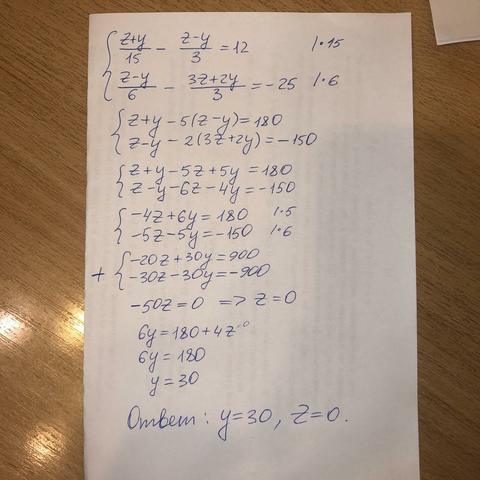 (z+y)/15 − (z−y)/3 = 12 /·15
(z−y)/6 − (3z+2y)/3 = −25 /·6
z+y −5(z−y)=180
z−y −2(3z+2y)=−150
z+y−5z+5y=180
z−y−6z−4y=−150
−4z+6y=180 /·5
−5z−5y=−150 /·6
+ −20z+30y=900
−30z−30y=−900
−50z=0 => z=0
6y=180+4z⁰
6y=180
y=30
Ответ: y=30, z=0.